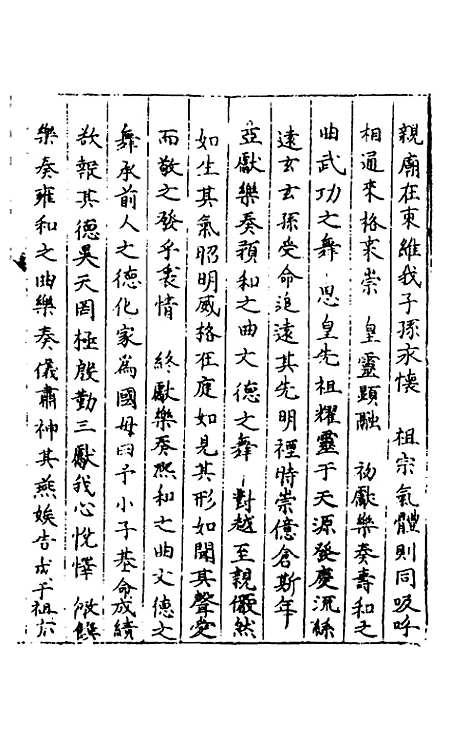 親廟在東維我子孫永懷　祖宗氣體則同呼吸
相通來格來崇　皇靈顯融　初獻樂奏壽和之
曲武功之舞　思皇先祖耀靈于天源發慶流緜
遠玄玄孫受命追遠其先明禋時崇億倉斯年
亞獻樂奏預和之曲文德之舞　對越至親儼然
如生其氣昭明感格在庭如見其形如聞其聲愛
而敬之發乎衷情　終獻樂奏熙和之曲文德之
舞承前人之德化家為國毋曰予小子基命成績
欲報其德昊天罔極殷勤三獻我心悅懌　徹饌
樂奏雍和之曲樂奏儀肅神其燕娭告成于祖亦